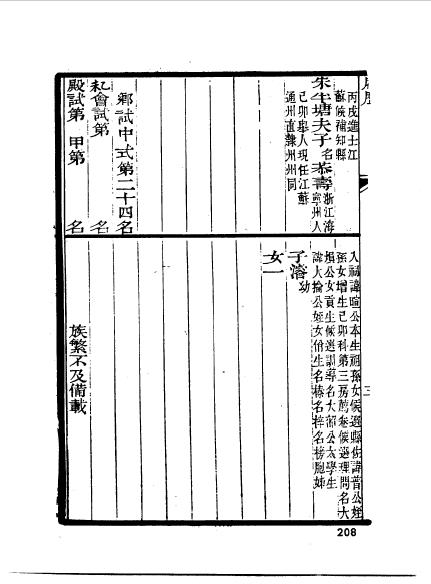 丙戌進士江
蘇候補知縣
朱午塘夫子名恭壽浙江海
寧州人
己卯舉人現任江蘇
通州直隸州州同
鄉試中式第二十四名
會試第 名
殿試第 甲第 名
入祠諱暄公本生祖孫女候選縣佐諱普公姪
孫女增生己卯科第三房薦卷候選理問名大
塤公女貢生候選訓導名大公太學生
諱大掄公姪女佾生名椿名梓名榜胞姊
子濬幼
女一
族繁不及備載
三
208